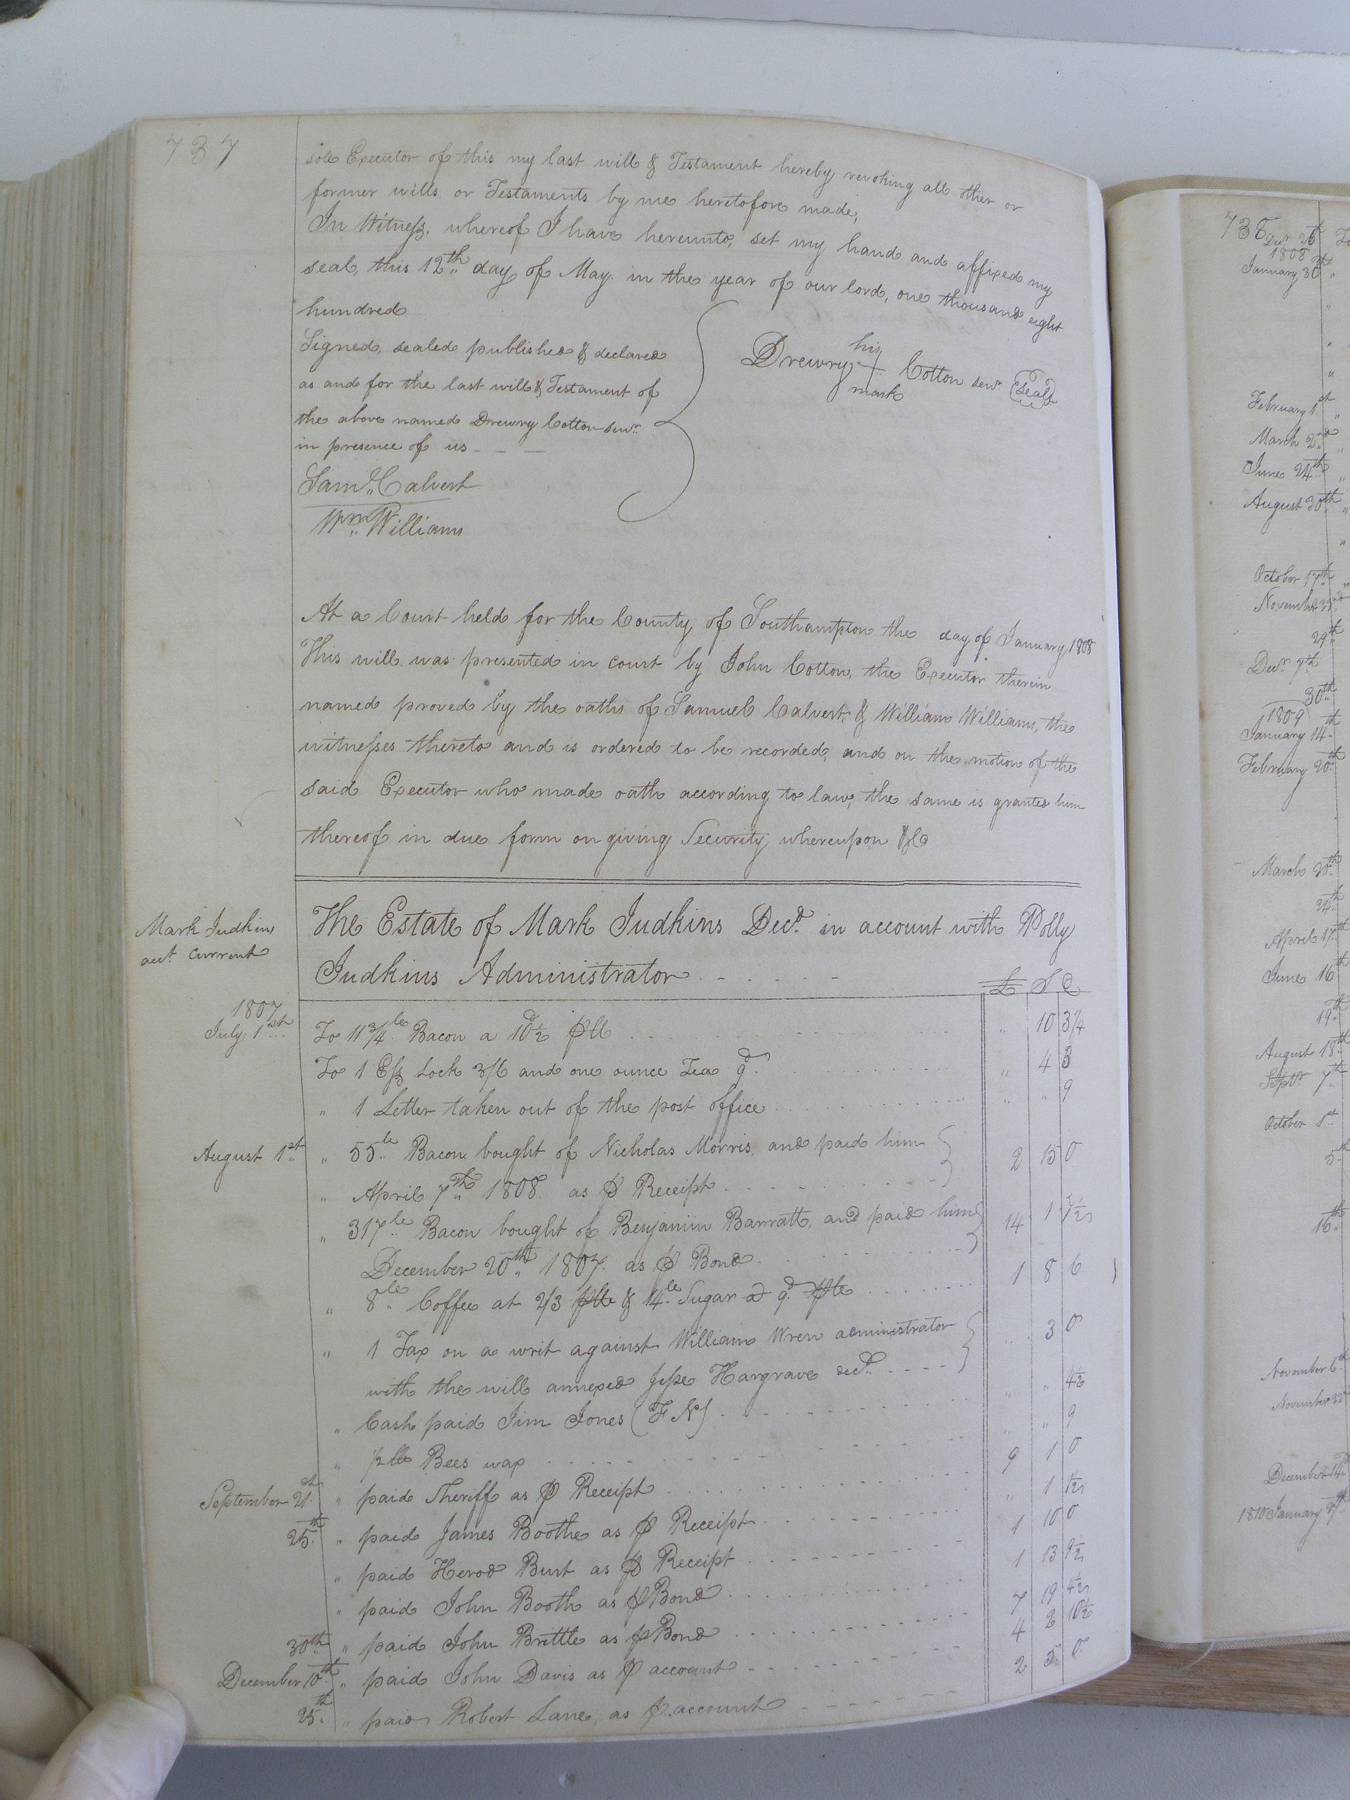 737
sole Executor of this my last will & Testament hereby revoking all other or
former wills or Testaments by me heretofore made,
In Witness, whereof I have hereunto, set my hand and affixed my
seal, this 12th day of May in the year of our lord, one thousand eight
hundred
Signed, sealed published & declared
as and for the last will & Testament of
the above named Drewry Cotton senr.
in presence of us
his
Drewry + Cotton senr. Seal
mark
Saml. Calvert
Wm. Williams
At a Court held for the County of Southampton the day of January 1808
This will was presented in court by John Cotton, the Executor therein
named proved by the oaths of Samuel Calvert & William Williams, the
witnesses thereto and is ordered to be recorded, and on the motion of the
said Executor who made oath according to law, the same is granted him
thereof in due form on giving Security whereupon &c
Mark Judkin
acct. current
The Estate of Mark Judkins Decd. in account with Polly
Judkins Administrator
£ S D
1807
July 1st To 11 3/4 le Bacon a 10 1/2 d ℔ lb " 10 3 1/4
To 1 Lock 3/6 and one ounce Tea 9d " 4 3
" 1 Letter taken out of the post office " " 9
August 1st " 55 le Bacon bought of Nicholas Morris, and paid him
" April 7th 1808. as ⅌ Receipt 2 15 0
" 317 le Bacon bought of Benjamin Barratt, and paid him 14 1 7 1/2
December 20th 1807. as ⅌ Bond
" 8 le Coffee at 2/3 & 14 le Sugar a 9d 1 8 6
" 1 Tax on a writ against William Wren administrator
with the will annexed Jesse Hargrave decd. " 3 0
" Cash paid Jim Jones (F N) " " 4 1/2
" Bees wax " " 9
September 21st " paid Sheriff as ⅌ Receipt 9 1 0
25th " paid James Boothe as ⅌ Receipt " 1 1 1/2
" paid Herod Burt as ⅌ Receipt 1 10 0
" paid John Booth as ⅌ Bond 1 13 9 1/2
30th " paid John Brittle as ⅌ Bond 7 19 4 1/2
December 10th " paid John Davis as ⅌ account 4 2 10 1/2
25th " paid Robert Lane, as ⅌ account 2 5 0
738
Decr 26th
1808
January 30th
February 1st
March 2nd
June 24th
August 30th
October 17th
29th
Decr. 7th
30th
1809
January 14th
February 20th
March 20th
24th
April 17th
June 16th
19th
August 18th
Septr 7th
October 1st
5th
16th
November 6th
December 14th
1810 January